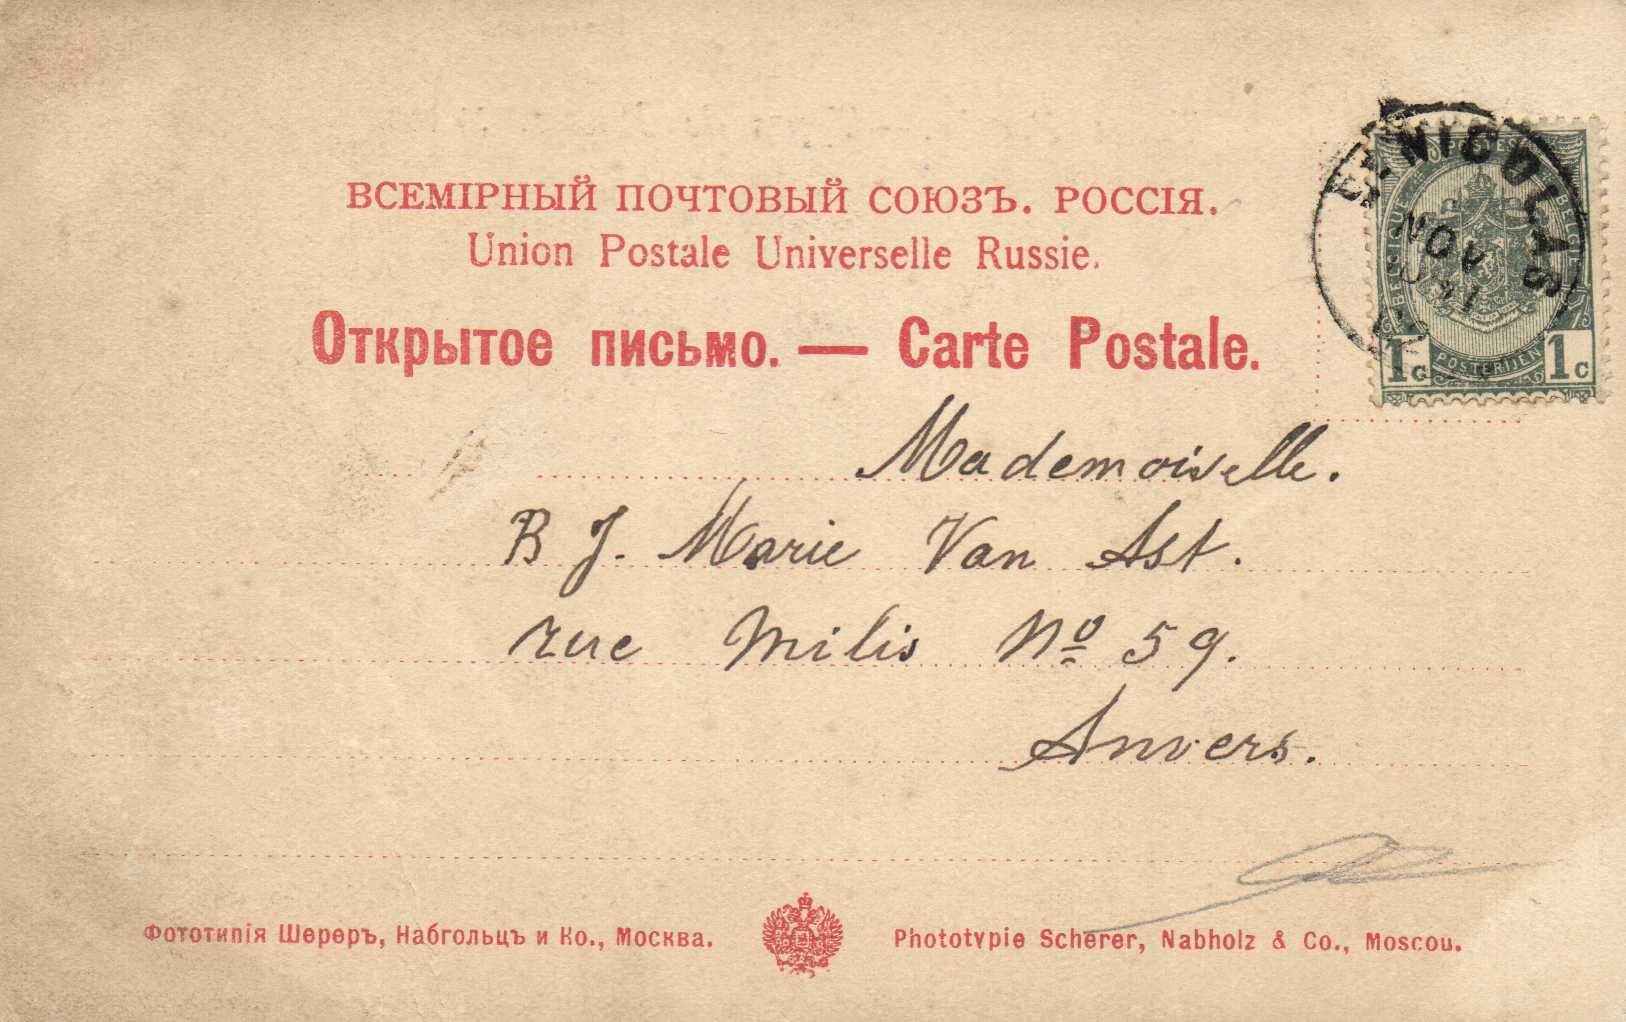 ВСЕМІРНЫЙ ПОЧТОВЫЙ СОЮЗЪ. РОССІЯ.
Union Postale Universelle Russie.
Открытое письмо. — Carte Postale.
NICOLAS
NOV
BELGIQUE
BELGIË
POSTERIJEN
1c 1c
Mademoiselle.
B J. Marie Van Ast.
rue Milis No 59.
Anvers.
Фототипія Шереръ, Набгольцъ и Ко., Москва.
Phototypie Scherer, Nabholz & Co., Moscou.